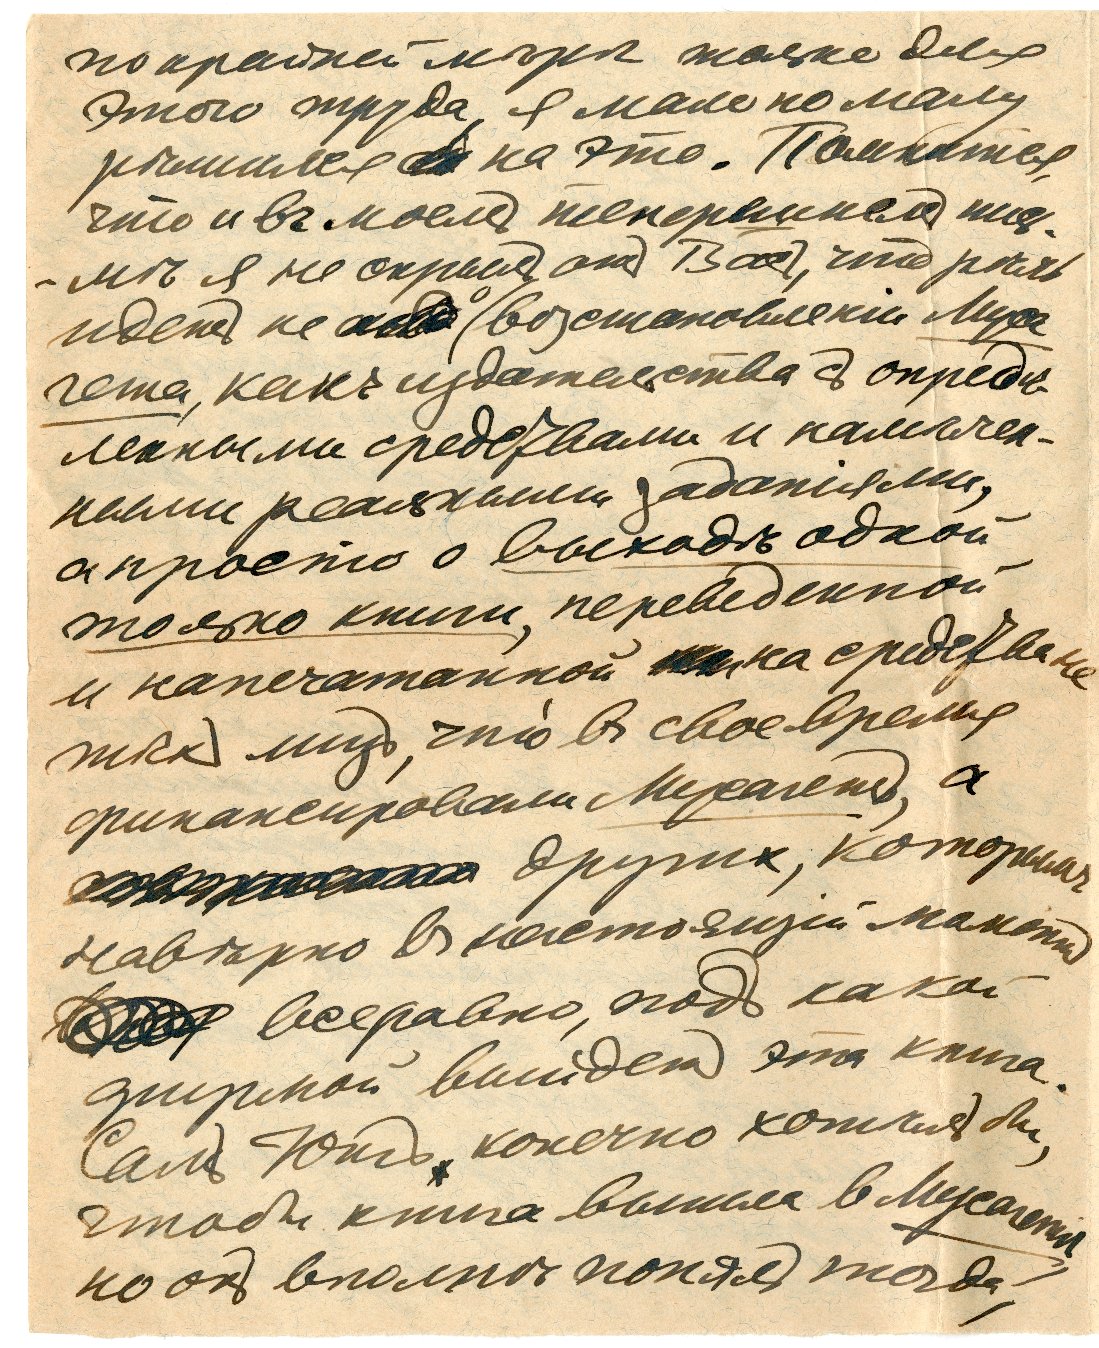 по крайней мѣрѣ только для
этого труда, я мало по малу
рѣшился на это. Помнится,
что и въ моемъ теперешнемъ пись-
-мѣ я не скрылъ отъ Васъ, что рѣчь
идетъ не о (воз)становленiи Муса
гета, какъ издательства съ опредѣ
ленными средствами и намѣчен-
ными реальными заданiями,
а просто о выходѣ одной
только книги, переведенной
и напечатанной на средства не
тѣхъ лицъ, что въ свое время
финансировали Мусагетъ, а
другихъ, которымъ
навѣрно въ настоящiй моментъ
всеравно, подъ какой
фирмой выйдетъ эта книга.
Самъ Юнгъ, конечно хотѣлъ бы,
чтобы книга вышла в Мусагетѣ,
но онъ вполнѣ понялъ тогда,